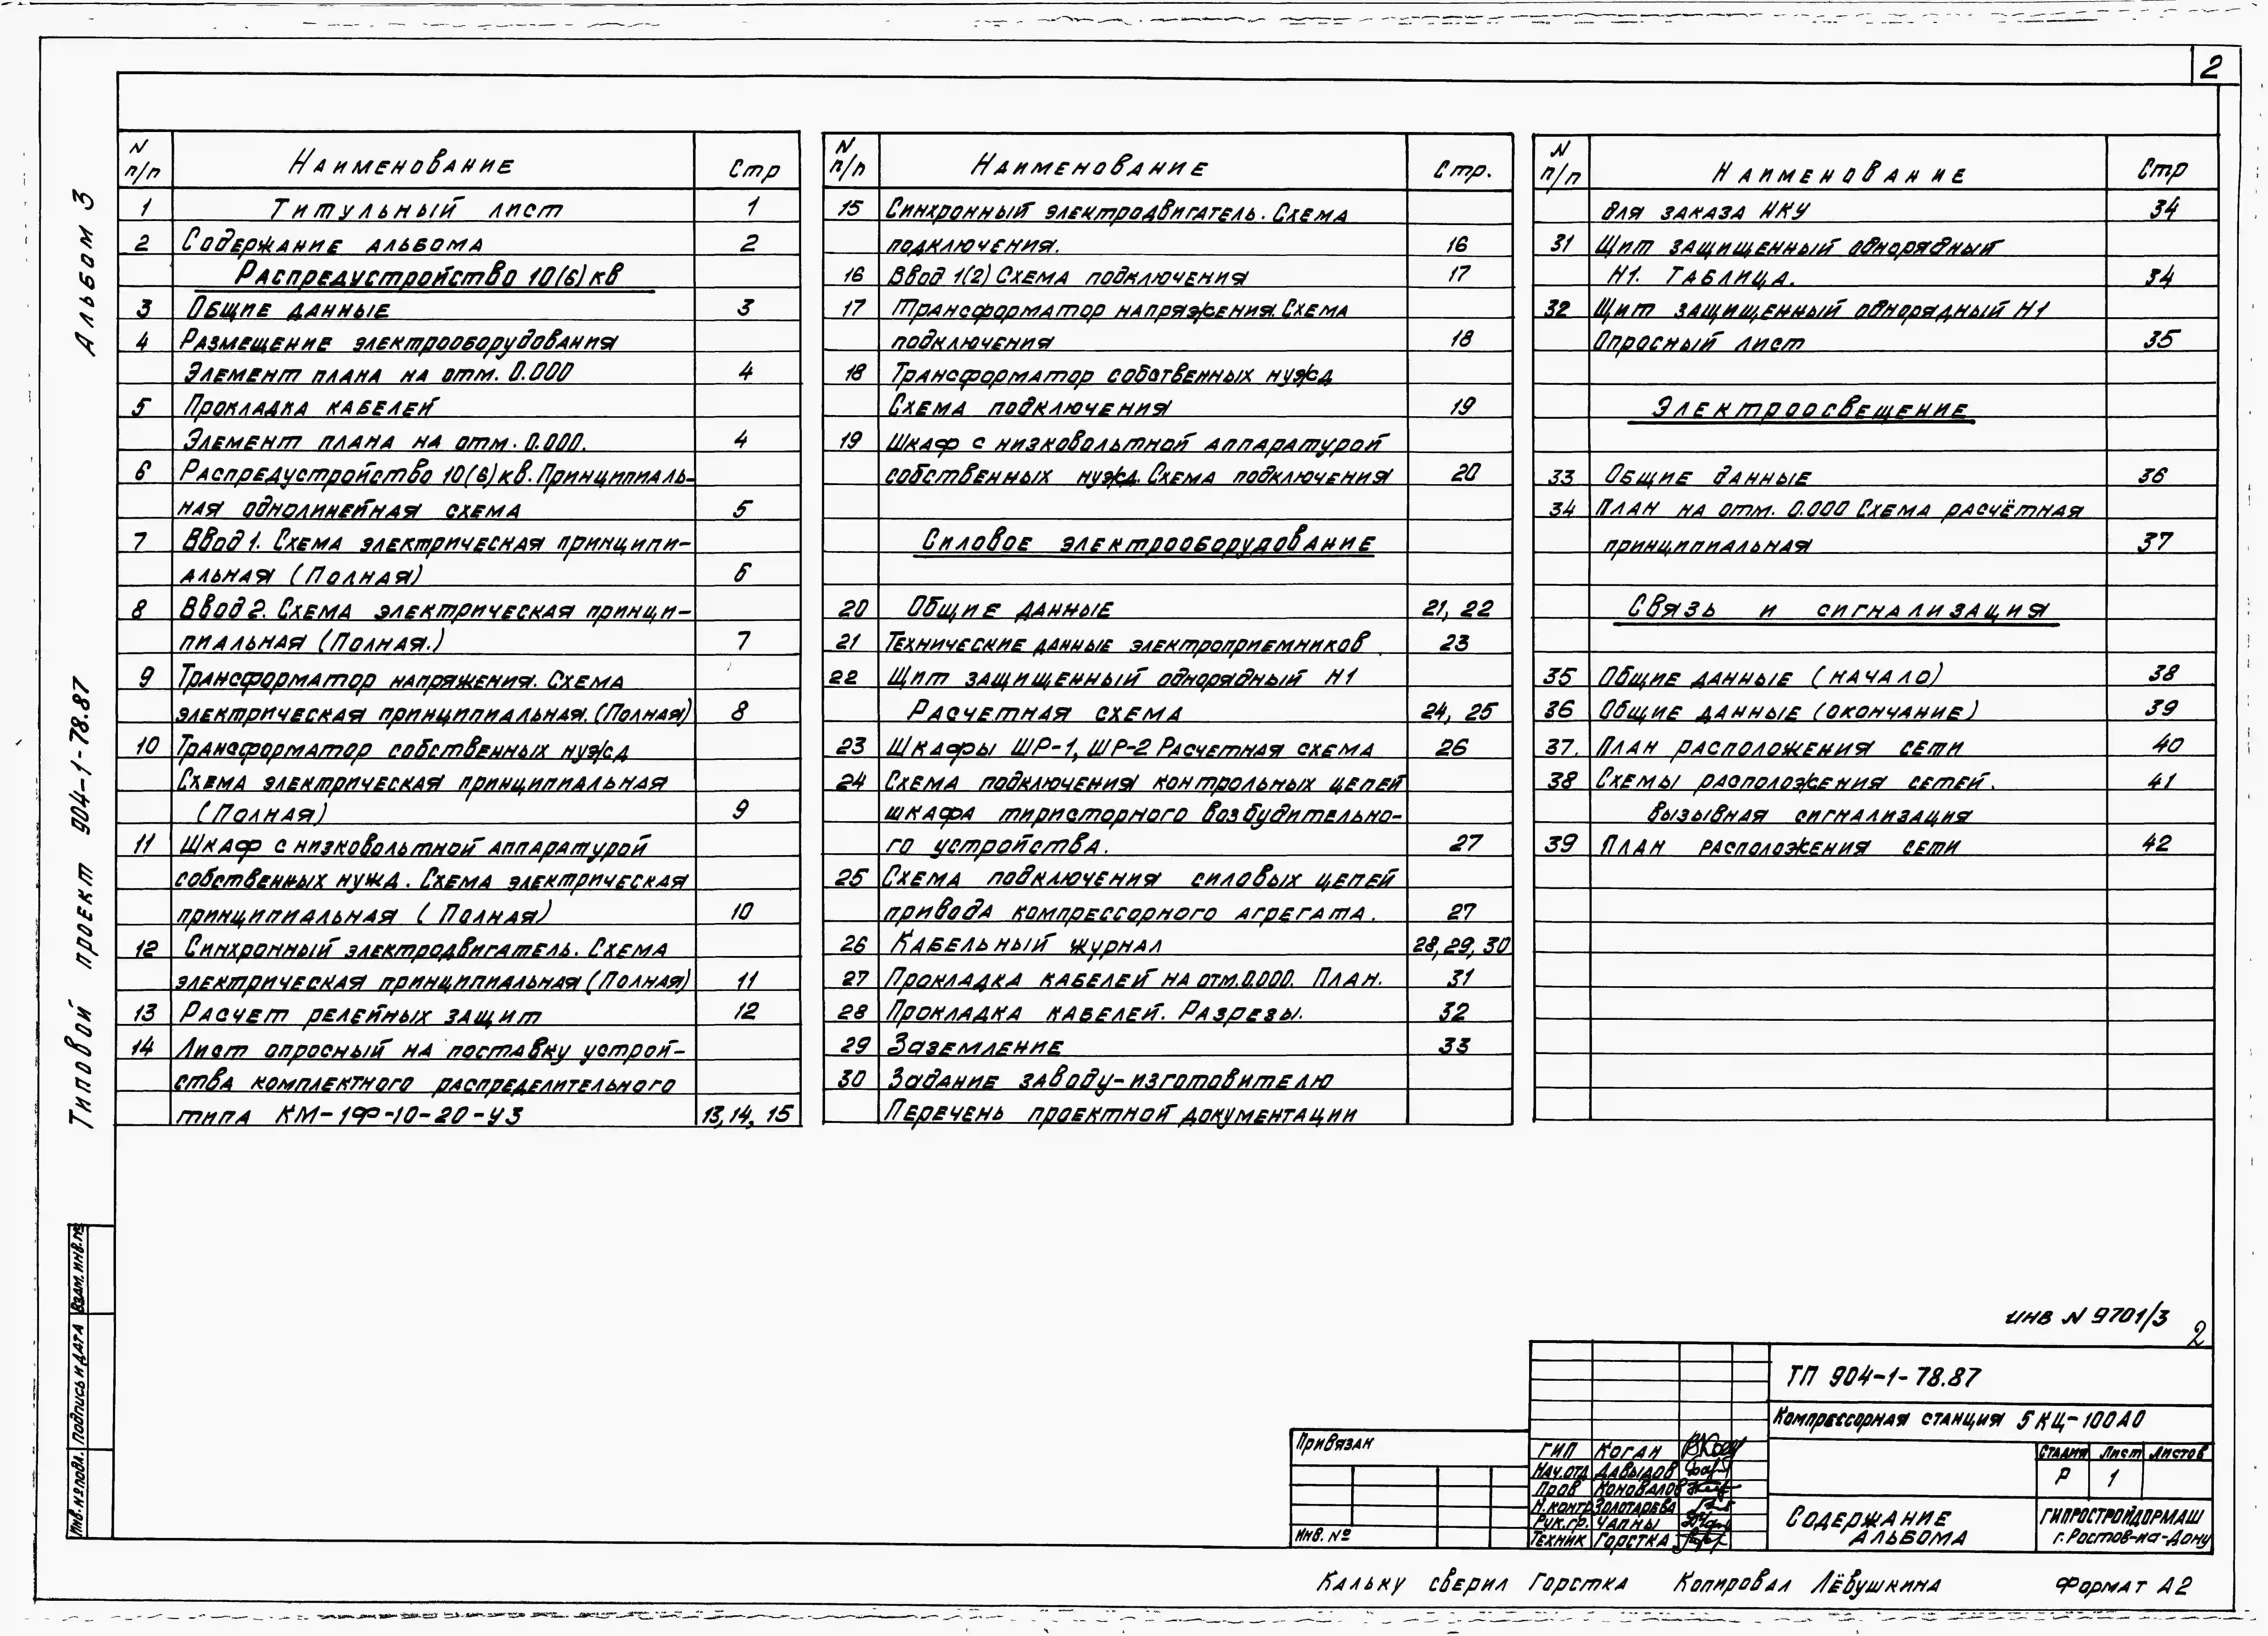 2
Альбом 3
Типовой проект 904-1-78.87
N п/п Наименование Стр
1 Титульный лист 1
2 Содержание альбома 2
Распредустройство 10(6)кв
3 Общие данные 3
4 Размещение электрооборудования
Элемент плана на отм. 0.000 4
5 Прокладка кабелей
Элемент плана на отм. 0.000. 4
6 Распредустройство 10(6)кв. Принципиаль-
ная однолинейная схема 5
7 Ввод 1. Схема электрическая принципи-
альная (Полная) 6
8 Ввод 2. Схема электрическая принци-
пиальная (Полная.) 7
9 Трансформатор напряжения. Схема
электрическая принципиальная. (Полная) 8
10 Трансформатор собственных нужд
Схема электрическая принципиальная
(Полная) 9
11 Шкаф с низковольтной аппаратурой
собственных нужд. Схема электрическая
принципиальная (Полная) 10
12 Синхронный электродвигатель. Схема
электрическая принципиальная (Полная) 11
13 Расчет релейных защит 12
14 Лист опросный на поставку устрой-
ства комплектного распределительного
типа КМ-1Ф-10-20-У3 13,14, 15
N п/п Наименование Стр.
15 Синхронный электродвигатель. Схема
подключения. 16
16 Ввод 1(2) Схема подключения 17
17 Трансформатор напряжения. Схема
подключения 18
18 Трансформатор собственных нужд
Схема подключения 19
19 Шкаф с низковольтной аппаратурой
собственных нужд. Схема подключения 20
Силовое электрооборудование
20 Общие данные 21, 22
21 Технические данные электроприемников 23
22 Щит защищенный однорядный Н1
Расчетная схема 24, 25
23 Шкафы ШР-1, ШР-2 Расчетная схема 26
24 Схема подключения контрольных цепей
шкафа тиристорного возбудительно-
го устройства. 27
25 Схема подключения силовых цепей
привода компрессорного агрегата. 27
26 Кабельный журнал 28,29,30
27 Прокладка кабелей на отм.0.000. План. 31
28 Прокладка кабелей. Разрезы. 32
29 Заземление 33
30 Задание заводу-изготовителю
Перечень проектной документации
N п/п Наименование Стр
для заказа НКУ 34
31 Щит защищенный однорядный
Н1. Таблица. 34
32 Щит защищенный однорядный Н1
Опросный лист 35
Электроосвещение
33 Общие данные 36
34 План на отм. 0.000 Схема расчётная
принципиальная 37
Связь и сигнализация
35 Общие данные (начало) 38
36 Общие данные (окончание) 39
37. План расположения сети 40
38 Схемы расположения сетей. 41
вызывная сигнализация
39 План расположения сети 42
Взам.инв.№
Подпись и дата
Инв.№подл.
инв N 9701/3
2
ТП 904-1-78.87
Компрессорная станция 5КЦ-100А0
Стадия Лист Листов
Р 1
Содержание
альбома
ГИПРОСТРОЙДОРМАШ
г.Ростов-на-Дону
Привязан
Инв. №
ГИП Коган
Нач.отд Давыдов
Пров Коновалов
Н.контр Золотарева
Рук.гр. Чапны
Техник Горстка
Кальку сверил Горстка Копировал Лёвушкина Формат А2